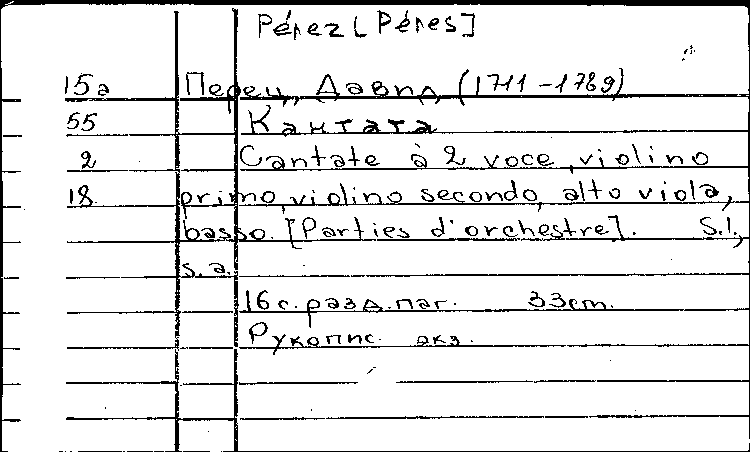 Pérez [Péres]
15a Перец, Давид, (1711-1789)
55 Кантата
2 Cantate à 2 voce, violino
18 primo, violino secondo, alto viola,
basso. [Parties d'orchestre]. S.l.,
s.a.
16 с. разд. паг. 33cm.
Рукопис. экз.